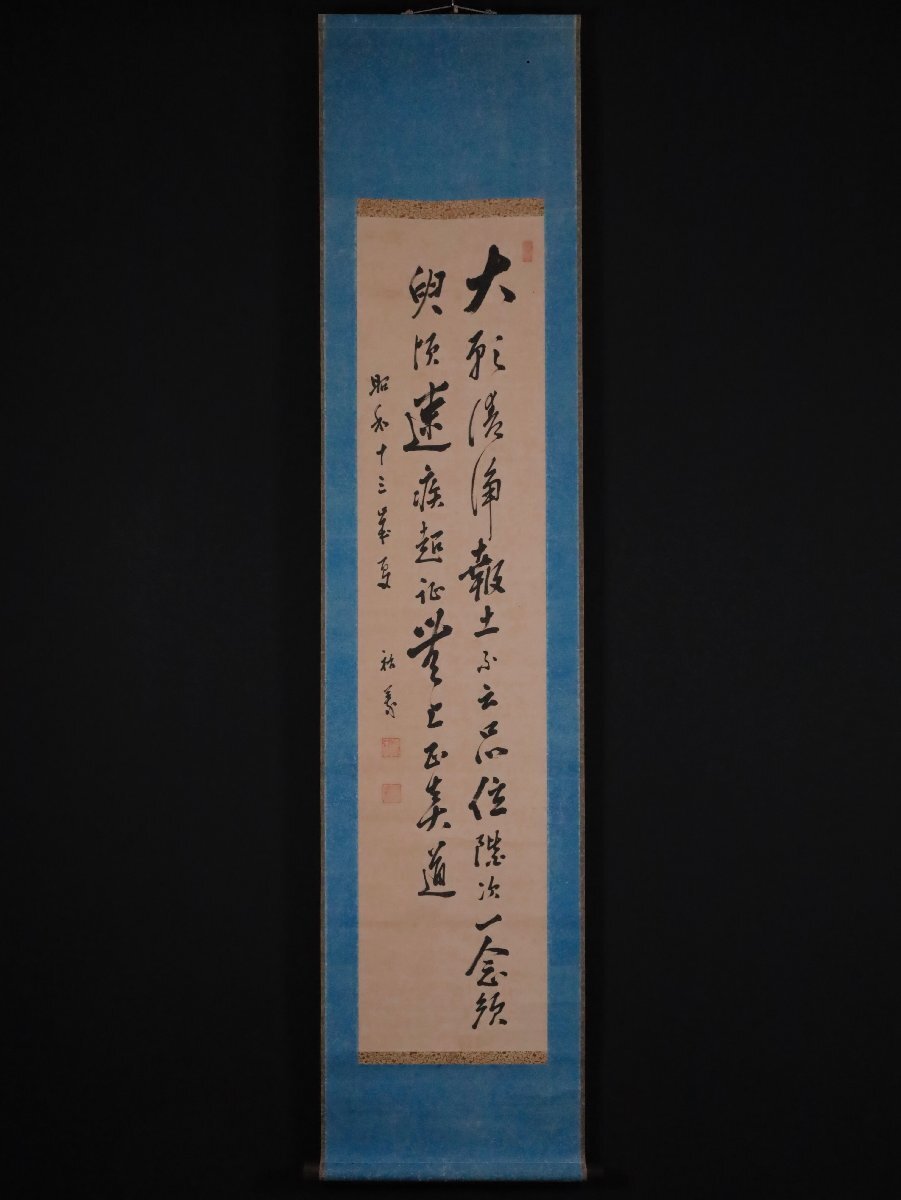 大願清浄報土不云品位階次一念須
臾頃速疾超証無上正真道
昭和十三歳夏　祐義